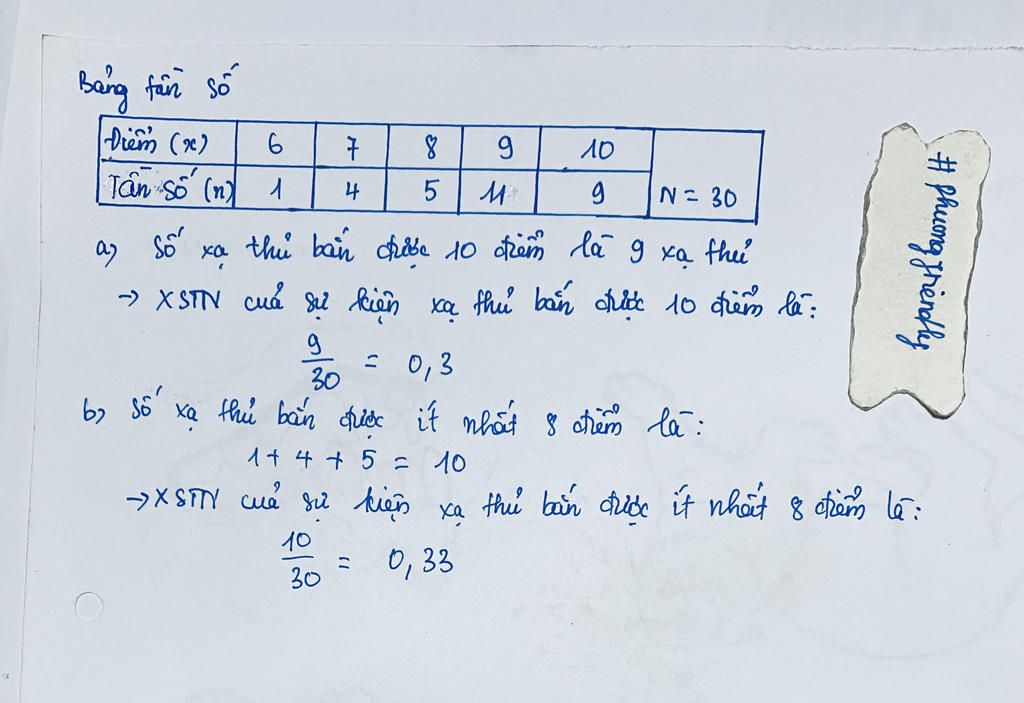 Bảng tần số
Điểm (x) 6 7 8 9 10
Tần số (n) 1 4 5 11 9 N = 30
a) Số xạ thủ bắn được 10 điểm là 9 xạ thủ
→ XSTN cuả sự kiện xạ thủ bắn được 10 điểm là:
9/30 = 0,3
b) Số xạ thủ bắn được ít nhất 8 điểm là:
1 + 4 + 5 = 10
→ XSTN cuả sự kiện xạ thủ bắn được ít nhất 8 điểm là:
10/30 = 0,33
# phuongfriendly